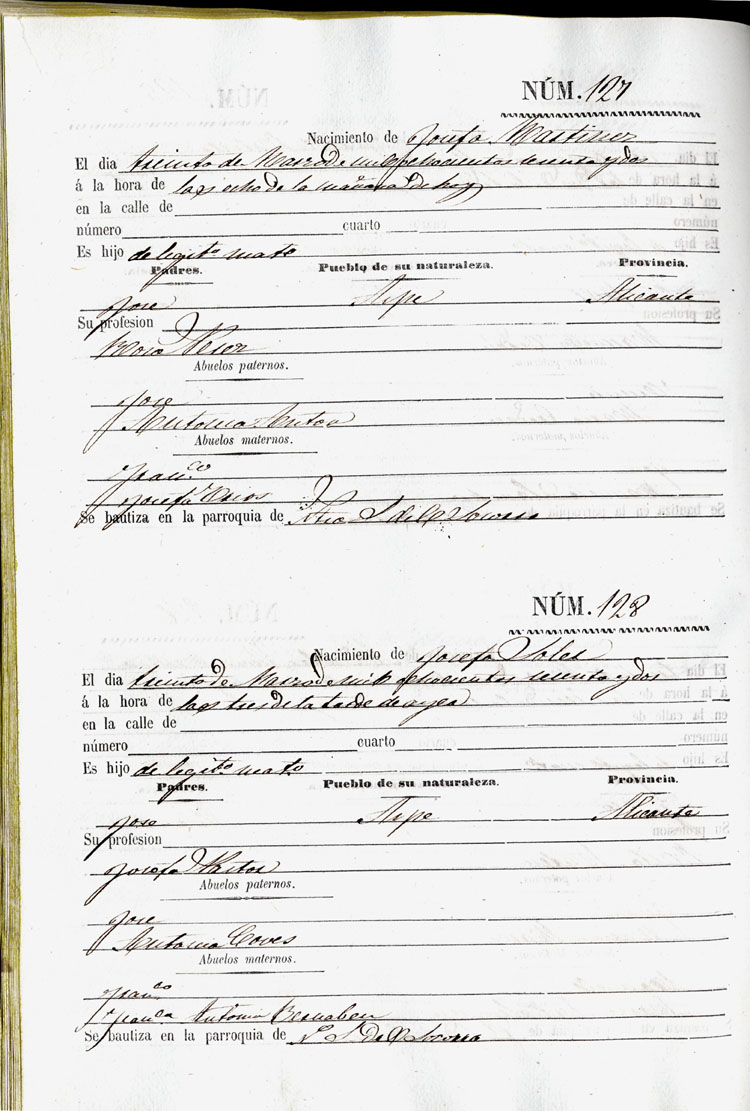 NÚM. 127
Nacimiento de Josefa Martinez
El dia treinta de Marzo de mil ochocientos sesenta y dos
á la hora de las ocho de la mañana de hoy
en la calle de
número cuarto
Es hijo de legito. mato.
Padres. Pueblo de su naturaleza. Provincia.
Jose Aspe Alicante
Su profesion
Abuelos paternos.
Jose
Antonia
Abuelos maternos.
Franco.
Josefa
Se bautiza en la parroquia de Socorro
NÚM. 128
Nacimiento de Josefa
El dia treinta de Marzo de mil ochocientos sesenta y dos
á la hora de las tres de la tarde de ayer
en la calle de
número cuarto
Es hijo de legito. mato.
Padres. Pueblo de su naturaleza. Provincia.
Jose Aspe Alicante
Su profesion
Josefa
Abuelos paternos.
Jose
Antonia Coves
Abuelos maternos.
Franco.
Antonia Bernabeu
Se bautiza en la parroquia de Socorro